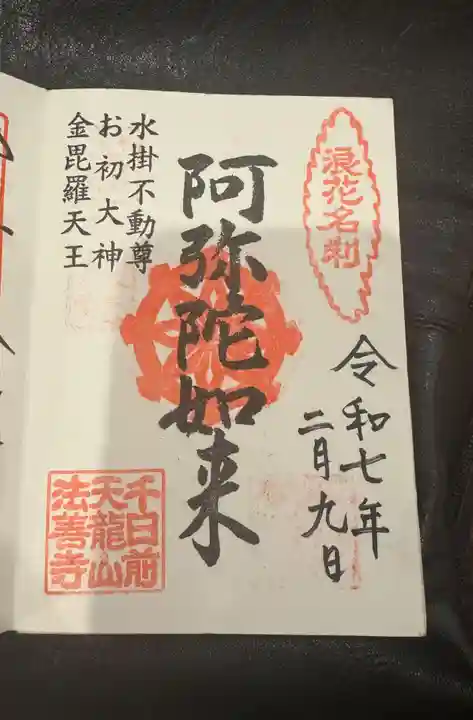 浪花名刹
令和七年
二月九日
阿弥陀如来
水掛不動尊
お初大神
金毘羅天王
千日前
天龍山
法善寺